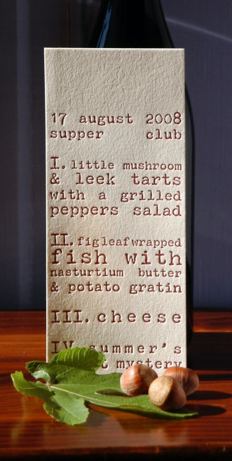 17 august 2008
supper club
I. little mushroom
& leek tarts
with a grilled
peppers salad
II. fig leaf wrapped
fish with
nasturtium butter
& potato gratin
III. cheese
IV. summer's
mystery